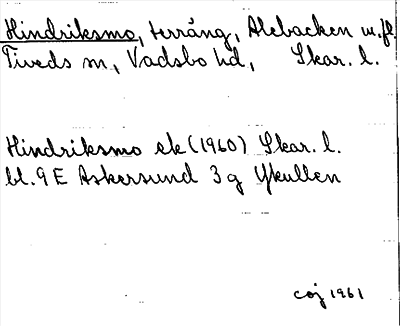 Hindriksmo, terräng, Alebacken m.fl.
Tiveds sn, Vadsbo hd, Skar. l.
Hindriksmo ek (1960) Skar. l.
bl. 9E Askersund 3g Ykullen
coj 1961